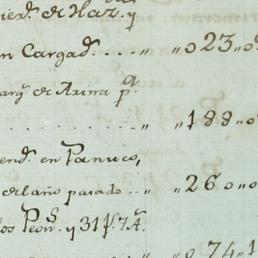 de Haz. y
n Cargad. . . . „ „ 023 „ 0
arg.ˢ de Arina p.ª
. . . . . . . . . „ „ 188 „ 0
end.ˢ en Panuco,
del año pasado . . „ „ 260 „ 0
los Peon.ˢ y 31 p.ˢ 7 r.ˢ
„ 074 „ 1